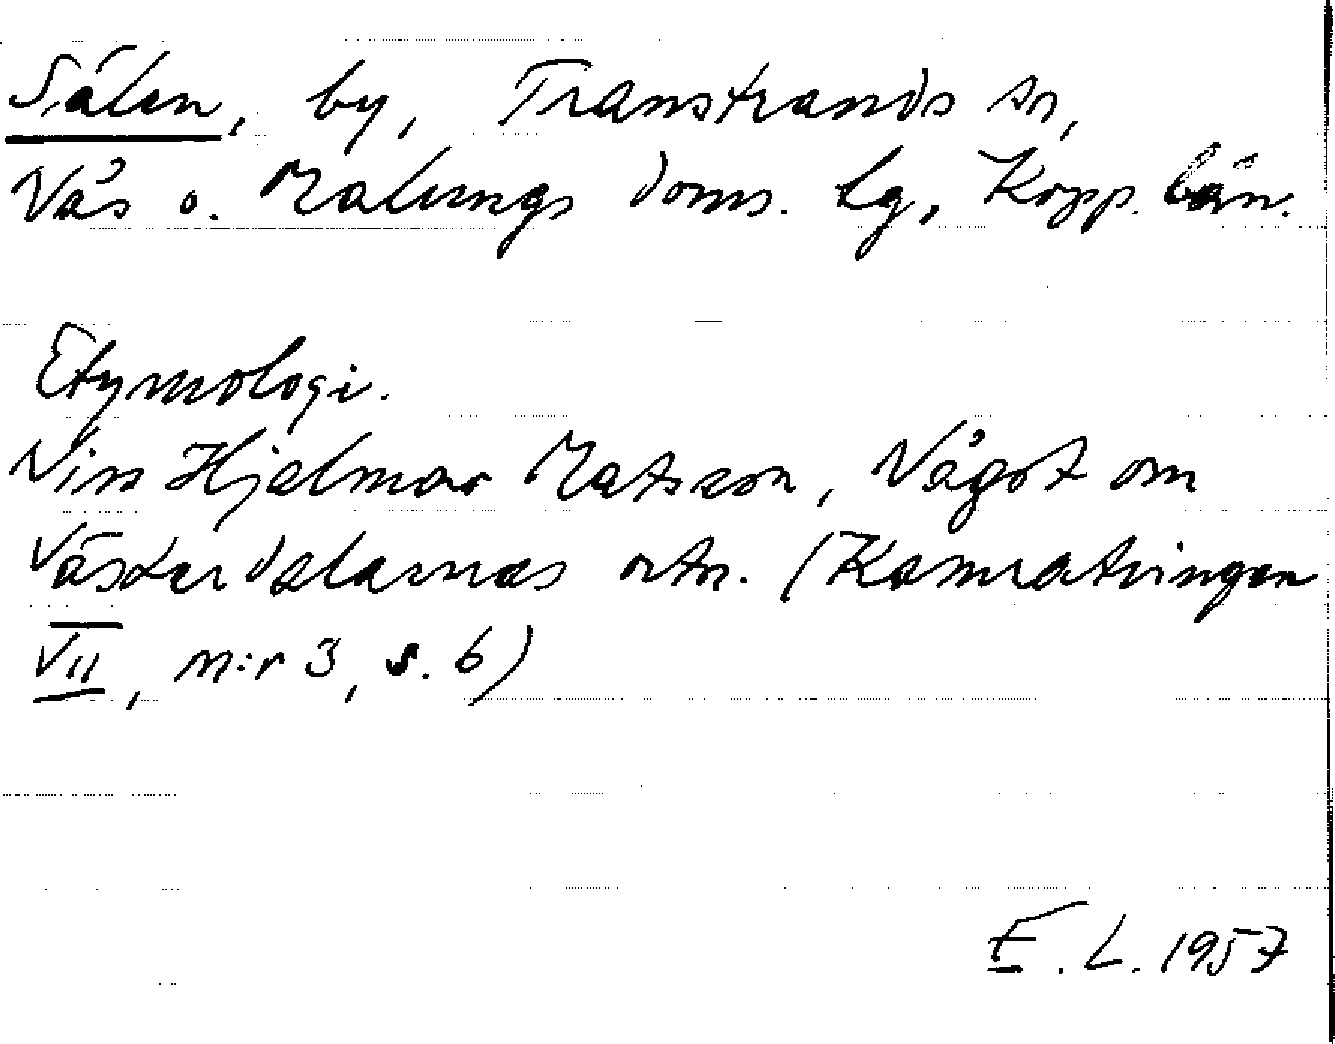 Sälen, by, Transtrands sn,
Nås o. Malungs doms. tg, Kopp. län.
Etymologi.
Nils Hjalmar Matsson, Något om
Västerdalarnas ortn. (Kamratringen
VII, n:r 3, s. 6)
E. L. 1957